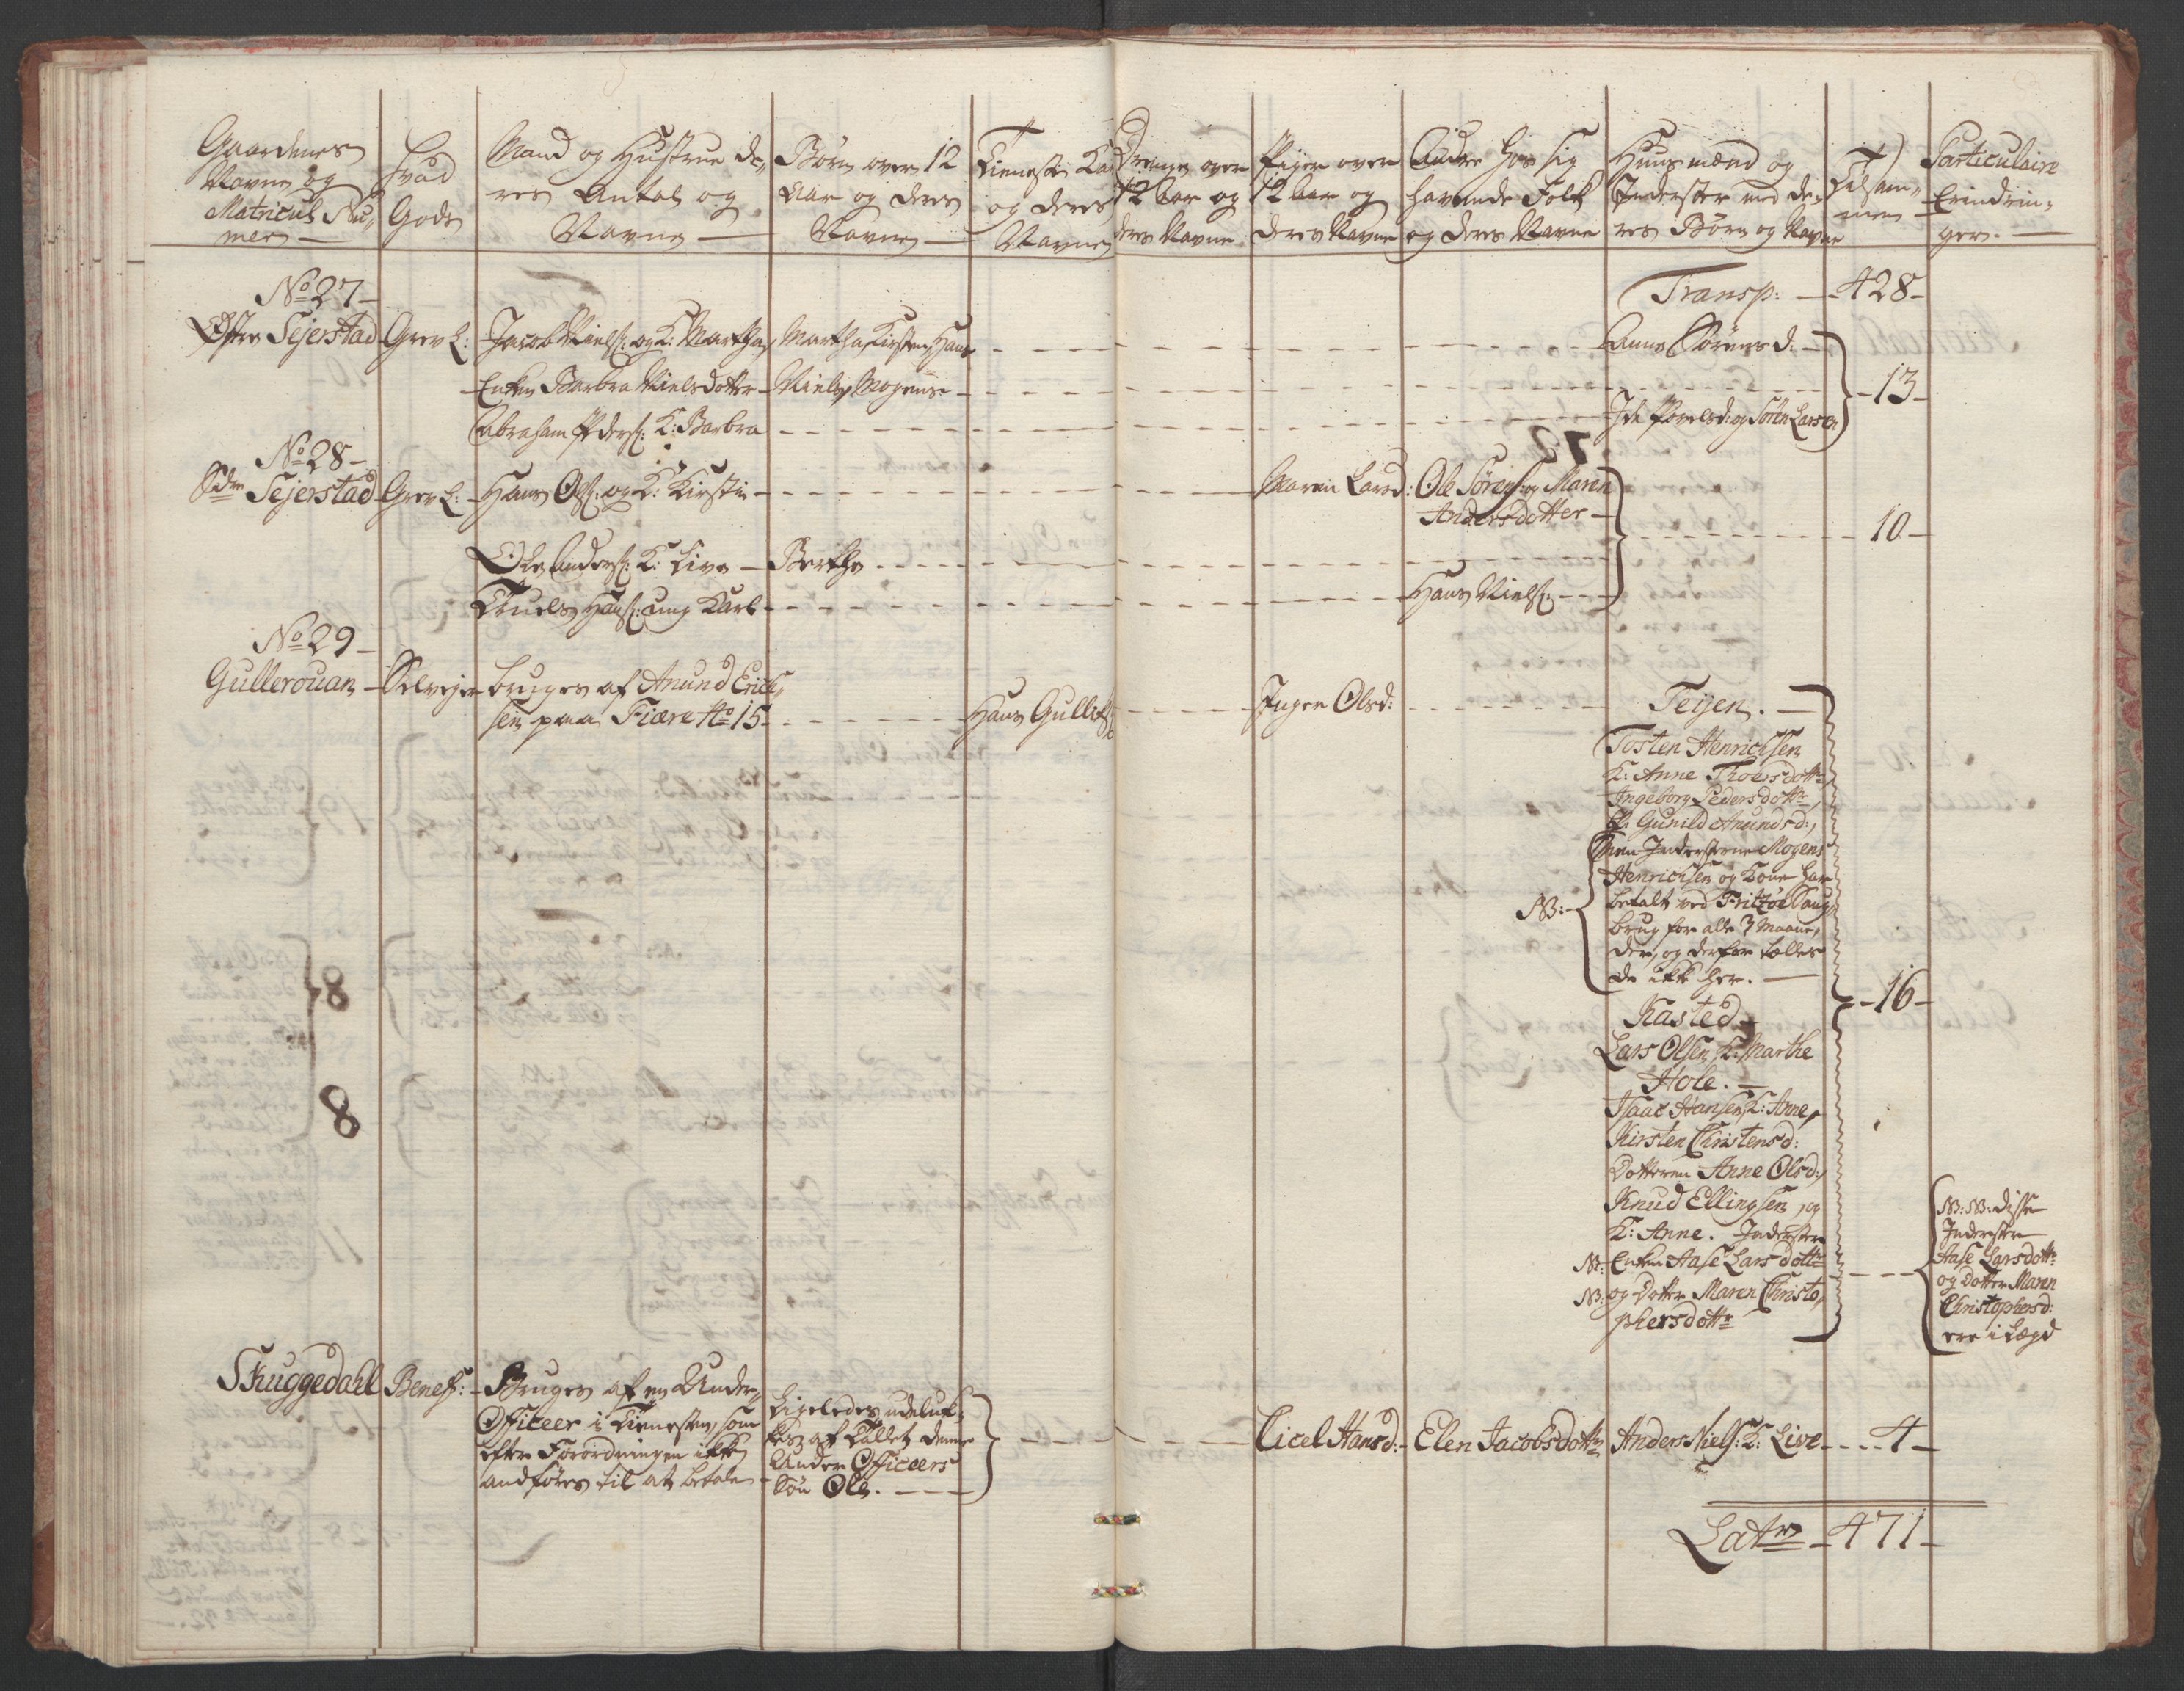 Gaardenes
Navne og
Matricul Nu„
mer —
Hvad
Gods
Mand og Hustrue de„
res Antal og
Navne —
Børn over 12
Aar og deres
Navne —
Tieneste Ka
og deres
Navne
Drenge over
12 Aar og
deres Navne
Piger over
12 Aar og
deres Navne
Andre hos sig
havende Folk
og deres Navne
Huusmænd og
Inderster med de„
res Børn og Navne
Tilsam„
men
Particulaire
Erindrin„
ger. —
Transp: — 428 —
No 27 —
Østre Sejerstad — Grev L: — Jacob Niels: og K: Martha, Martha, Kirsten, Hans — Anne Sørensd: —
Enken Barbra Nielsdotter — Niels, Mogens — 13 —
Abraham Peders: K: Barbra — Ide Povelsd: og Søren Larsen
No 28 —
Sdre Sejerstad — Grev L: — Hans Ols: og K: Kirstin — Maren Larsd: Ole Sørens: og Maren
Andersdotter — 10 —
Ole Anders: K: Live — Berthe
Truels Hans: ung Karl — Hans Niels:
No 29 —
Gullerouan — Selvejer — bruges af Anund Erich„
sen paa Fiære No 15 — Hans Gullichs: — Inger Olsd: — Teijen. —
Tosten Henrichsen
K: Anne Thoersdottr,
Ingeborg Pedersdottr,
P: Gunild Anundsd:,
NB: — men Inderstene Mogens
Henrichsen og Kone har
betalt ved Fritzøe Saug„
brug for alle 3 Maane„
der, og derfor tælles
de ikke her. —
16 —
Kasted
Lars Olsen, K: Marthe
Hole. —
Isaac Hansen, K: Anne,
Kirsten Christensd:
Dotteren Anne Olsd:,
Knud Ellingsen, og
K: Anne. Inderster
NB: Enken Aase Larsdottr
NB: og Dotter Maren Christo„
phersdottr
NB: NB: disse
Inderster
Aase Larsdottr
og Dotter Maren
Christophersd:
ere i Lægd
Skuggedahl — Benef: — Bruges af en Under„
Officeer i Tienesten, som
efter Forordningen ikke
andføres til at betale
Ligeledes udeluk„
kes af Tallet denne
Under Officeers
Søn Ole. —
Cicel Hansd: — Elen Jacobsdottr — Anders Niels: K: Live — 4 —
Latus — 471 —